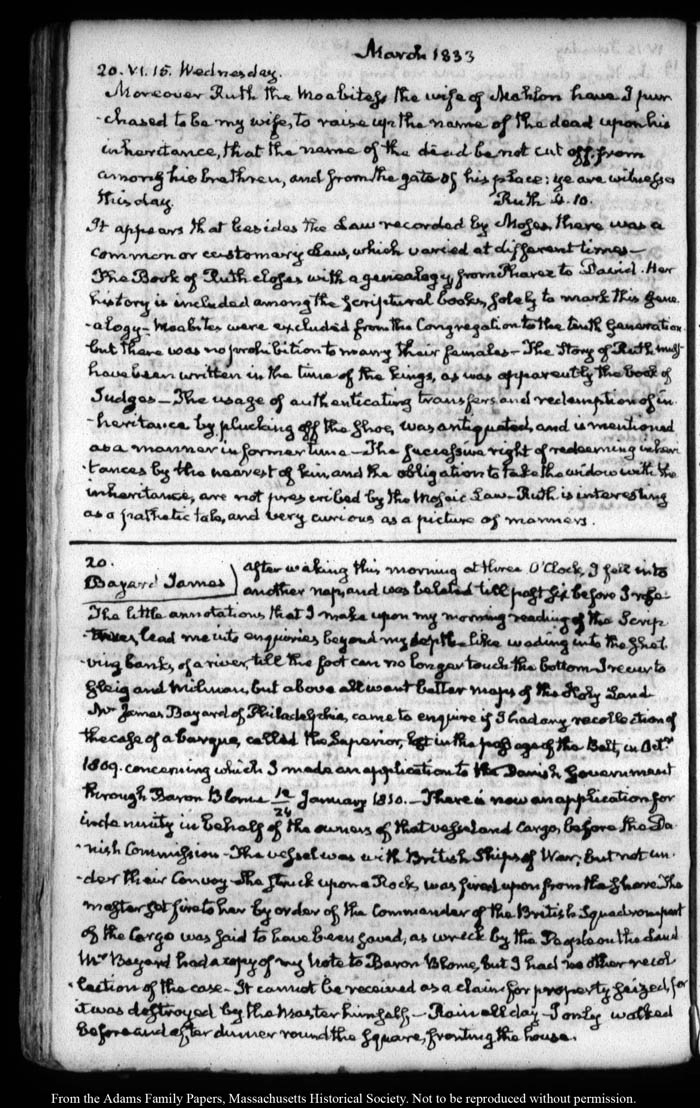 March 1833
20. VI. 15. Wednesday.
Moreover Ruth the Moabitess the wife of Mahlon have I pur
-chased to be my wife, to raise up the name of the dead upon his
inheritance, that the name of the dead be not cut off from
among his brethren, and from the gate of his place: ye are witnesses
this day. Ruth 4. 10.
It appears that besides the Law recorded by Moses, there was a
common or customary Law, which varied at different times—
The Book of Ruth closes with a genealogy from Pharez to David. Her
history is included among the scriptural books, solely to mark this gene
-alogy— Moabites were excluded from the Congregation to the tenth generation
but there was no prohibition to marry their females— The Story of Ruth must
have been written in the time of the Kings, as was apparently the book of
Judges— The usage of authenticating transfers and redemption of in
-heritance by plucking off the shoe, was antiquated, and is mentioned
as a manner in former time— The successive right of redeeming inheri
-tances by the nearest of kin, and the obligation to take the widow with the
inheritance, are not prescribed by the Mosaic Law— Ruth is interesting
as a pathetic tale, and very curious as a picture of manners.
20.
Bayard James
after waking this morning at three O'Clock, I fell into
another nap, and was belated till past six before I rose—
The little annotations that I make upon my morning reading of the Scrip
-tures, lead me into enquiries beyond my depth— like wading into the shel
-ving banks, of a river, till the foot can no longer touch the bottom— I recur to
Gleig and Milman, but above all want better maps of the Holy Land
Mr James Bayard of Philadelphia, came to enquire if I had any recollection of
the case of a barque, called the Superior, lost in the passage of the Belt, in Octr
1809. concerning which I made an application to the Danish Government
through Baron Blome 12/24 January 1810.— There is now an application for
indemnity in behalf of the owners of that vessel and cargo, before the Da
-nish Commission— The vessel was with British Ships of War; but not un
-der their Convoy— She struck upon a Rock, was fired upon from the shore. The
master set fire to her by order of the Commander of the British Squadron, part
of the Cargo was said to have been saved, as wreck by the People on the Land
Mr Bayard had a copy of my Note to Baron Blome, but I had no other recol
-lection of the case— It cannot be received as a claim for property seized, for
it was destroyed by the master himself— Rain all day— I only walked
before and after dinner round the Square, fronting the house.
From the Adams Family Papers, Massachusetts Historical Society. Not to be reproduced without permission.